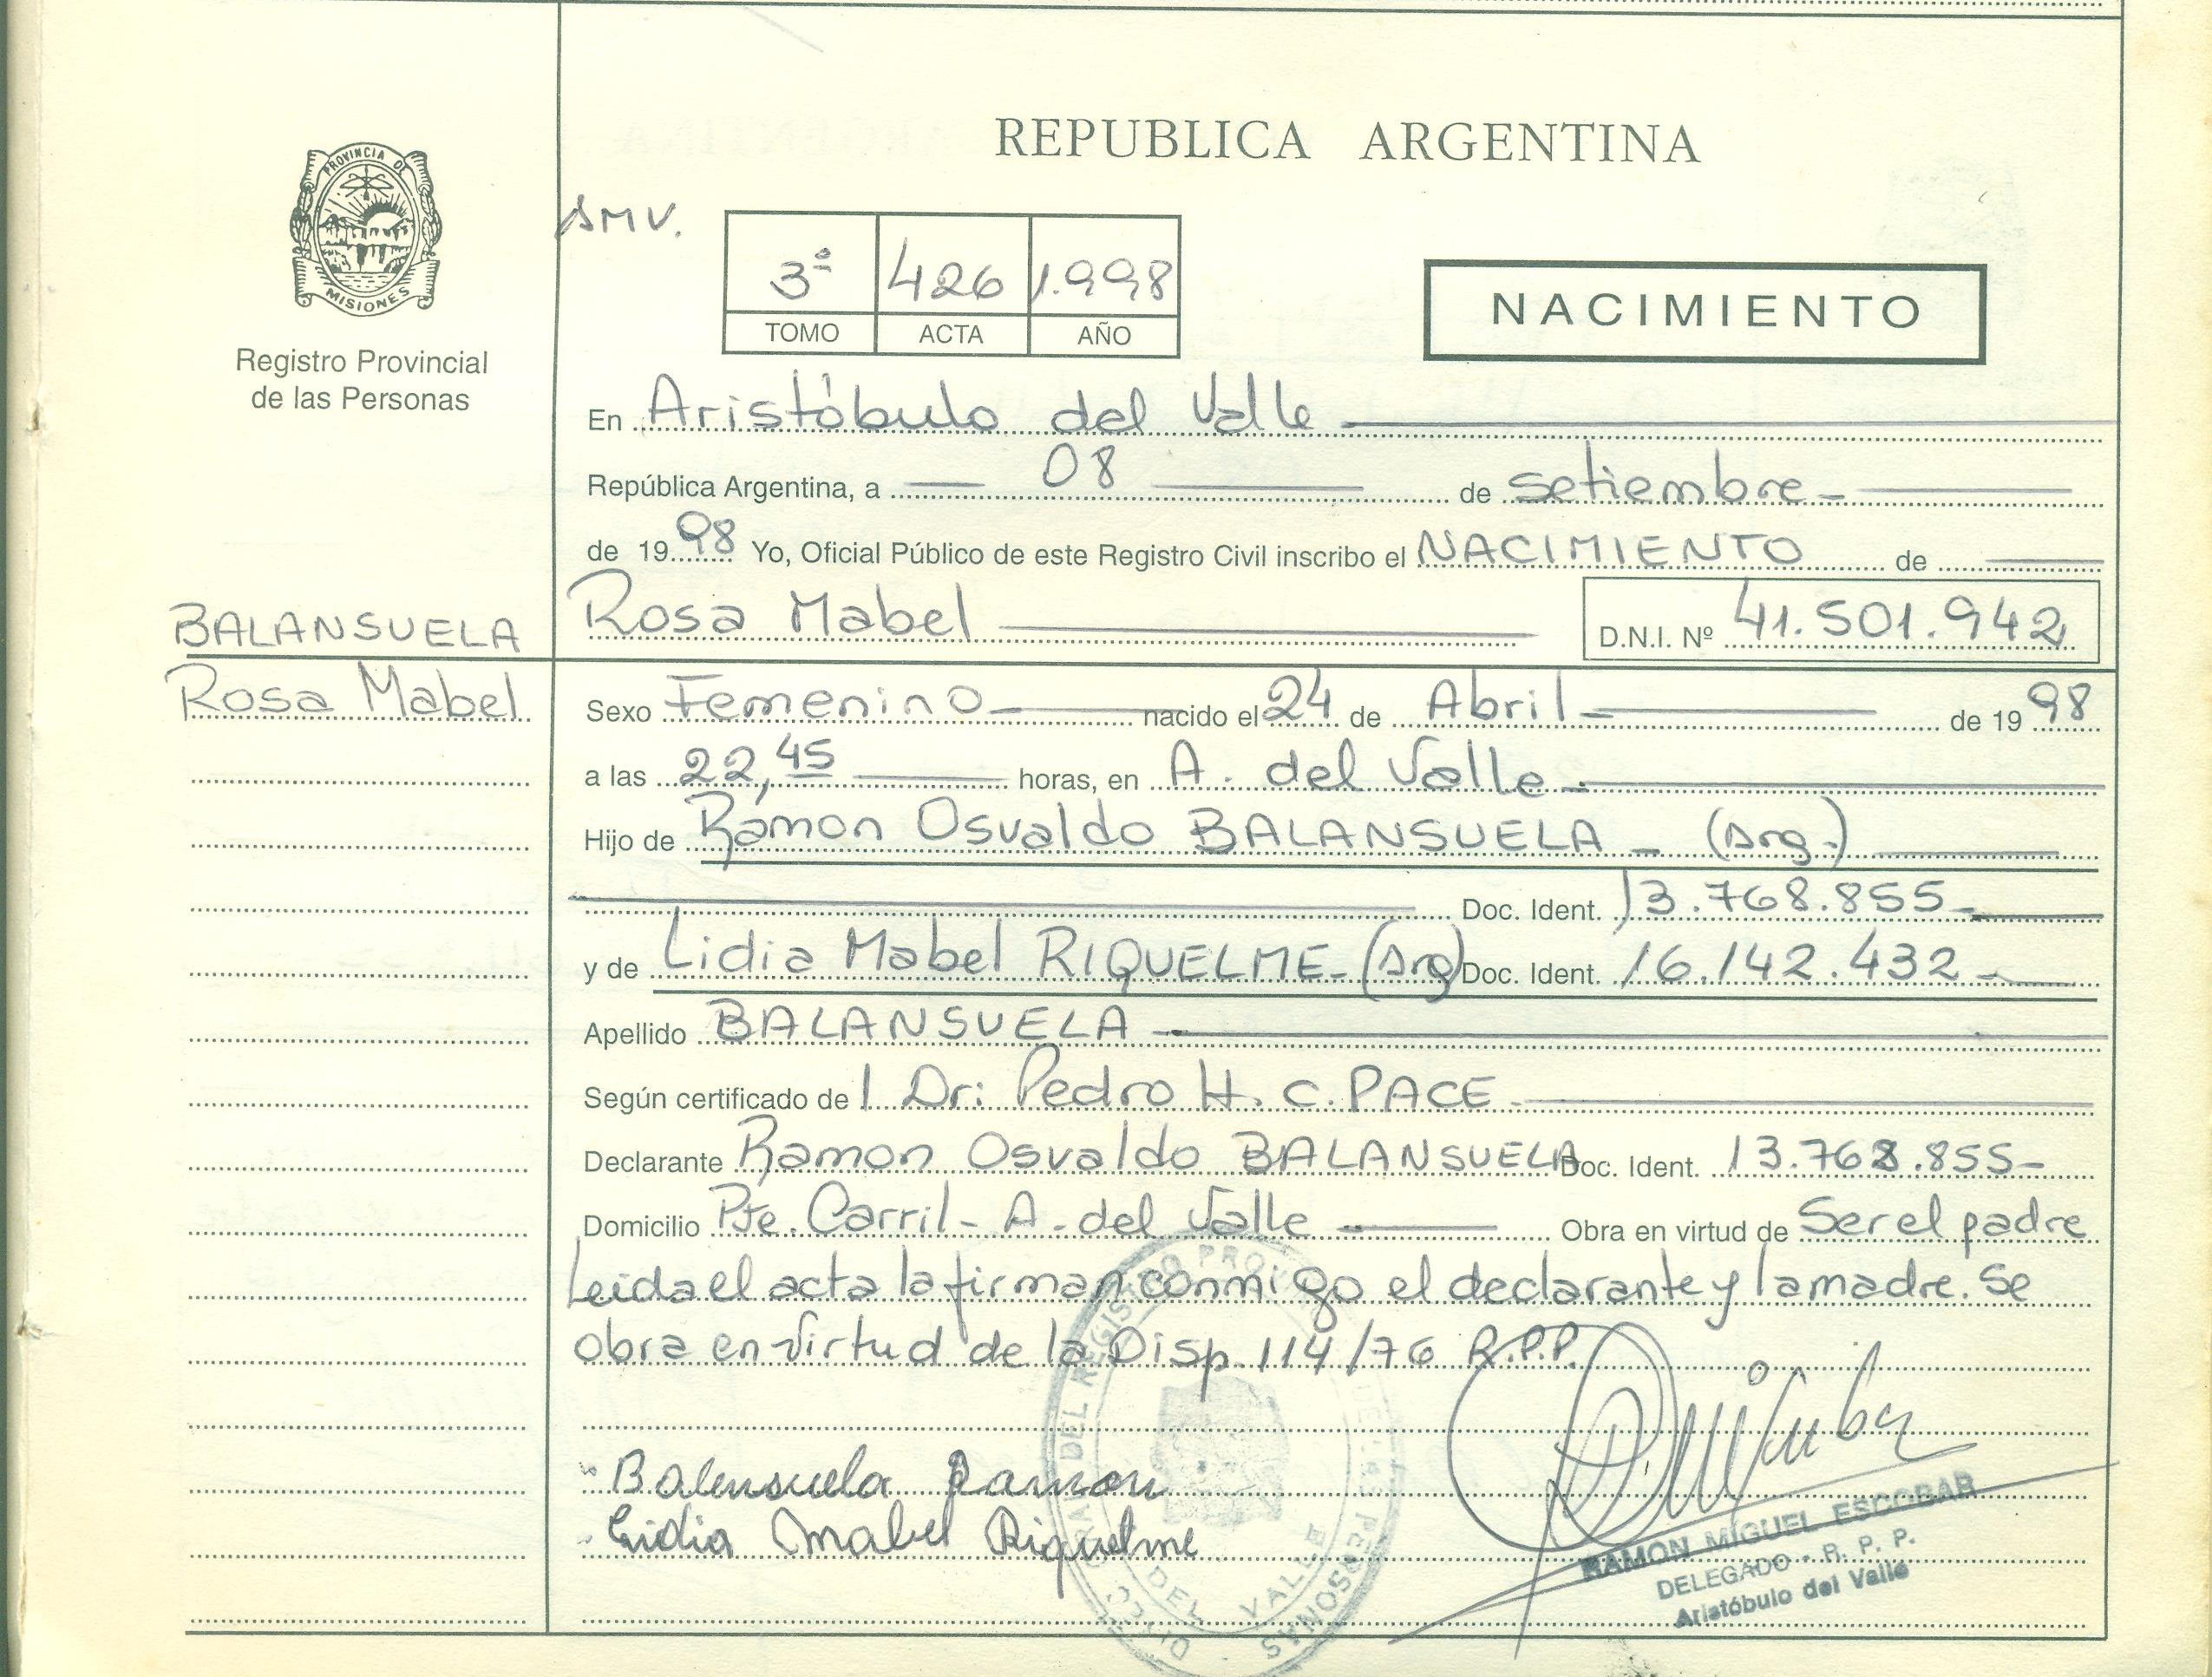 REPUBLICA ARGENTINA
PROVINCIA DE
MISIONES
Registro Provincial
de las Personas
SMV.
3ª 426 1.998
TOMO ACTA AÑO
NACIMIENTO
En Aristóbulo del Valle
República Argentina, a 08 de setiembre
de 1998 Yo, Oficial Público de este Registro Civil inscribo el NACIMIENTO de
BALANSUELA
Rosa Mabel D.N.I. Nº 41.501.942
Rosa Mabel
Sexo Femenino nacido el 24 de Abril de 1998
a las 22,45 horas, en A. del Valle
Hijo de Ramon Osvaldo BALANSUELA (Arg.)
Doc. Ident. 13.768.855
y de Lidia Mabel RIQUELME (Arg) Doc. Ident. 16.142.432
Apellido BALANSUELA
Según certificado de l Dr: Pedro H. C. PACE
Declarante Ramon Osvaldo BALANSUELA Doc. Ident. 13.768.855
Domicilio Pte. Carril - A. del Valle Obra en virtud de Ser el padre
Leida el acta la firman conmigo el declarante y la madre. Se
obra en virtud de la Disp. 114/76 R.P.P.
Balensuela Ramon
Lidia Mabel Riquelme
RAMON MIGUEL ESCOBAR
DELEGADO - R. P. P.
Aristóbulo del Valle
DEL VALLE